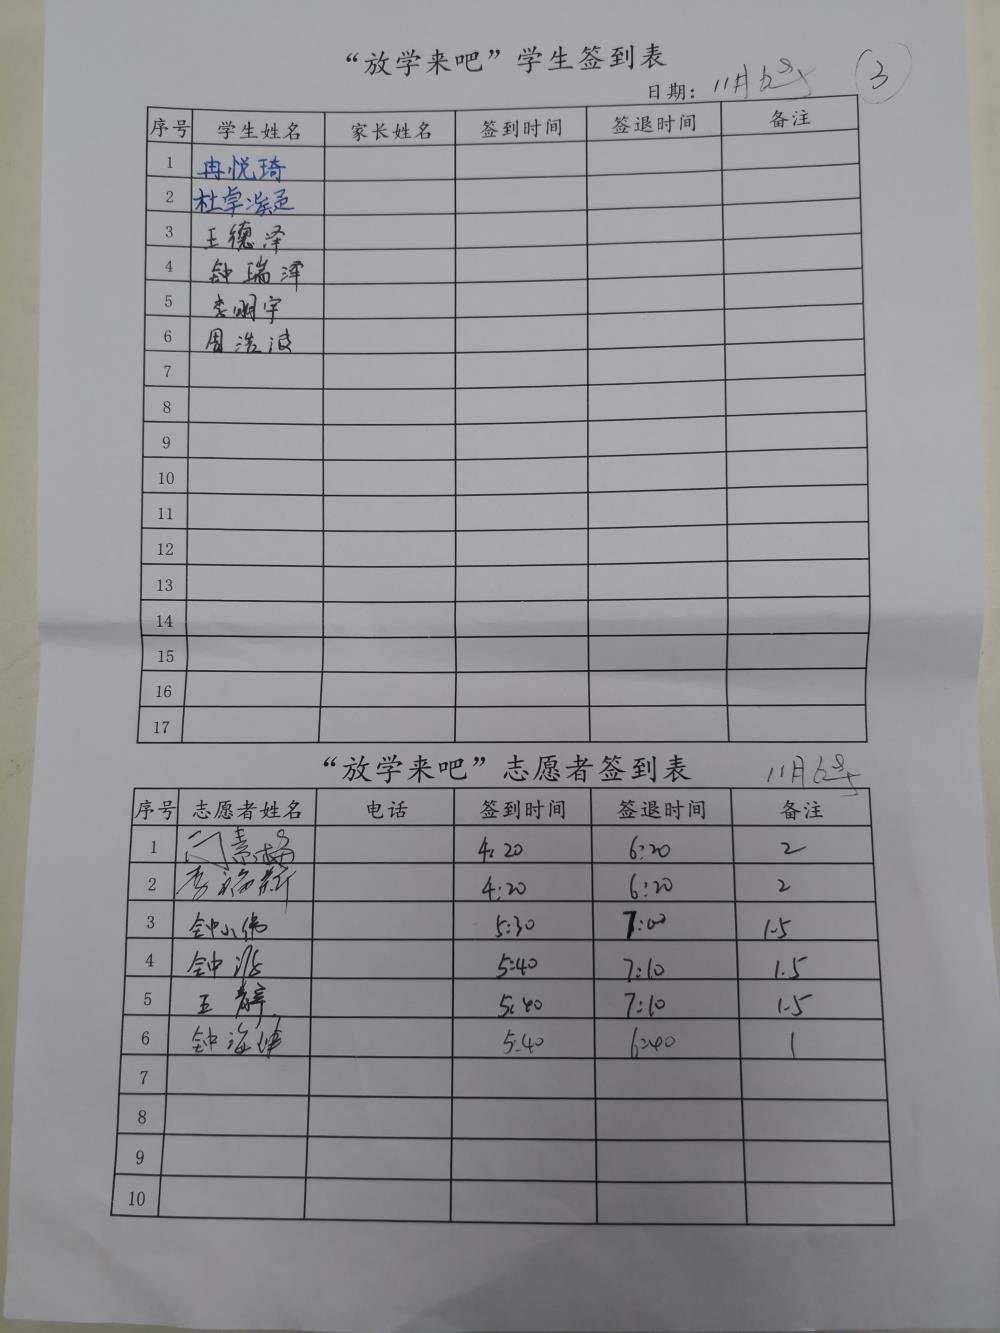 “放学来吧”学生签到表
日期：11月 3
序号 学生姓名 家长姓名 签到时间 签退时间 备注
1 冉悦琦
2 杜卓
3 王德泽
4 钟瑞泽
5 李明宇
6 周浩波
7
8
9
10
11
12
13
14
15
16
17
“放学来吧”志愿者签到表 11月
序号 志愿者姓名 电话 签到时间 签退时间 备注
1 4:20 6:20 2
2 李 4:20 6:20 2
3 钟小伟 5:30 7:00 1.5
4 钟 5:40 7:10 1.5
5 王 5:40 7:10 1.5
6 钟海 5:40 6:40 1
7
8
9
10